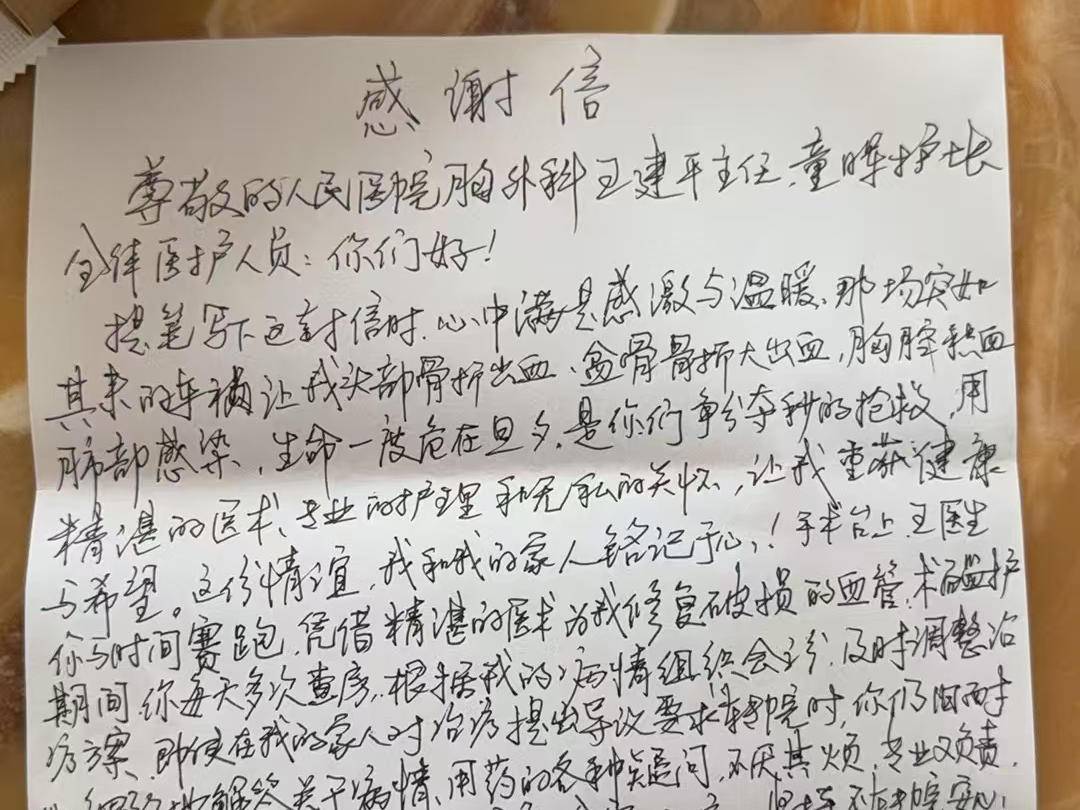 感谢信
尊敬的人民医院胸外科王建平主任、童晖护长
全体医护人员：你们好！
提笔写下这封信时，心中满是感激与温暖、那场突如
其来的车祸让我头部骨折出血、盆骨骨折大出血，胸腔积血
肺部感染，生命一度危在旦夕，是你们争分夺秒的抢救，用
精湛的医术、专业的护理和无私的关怀，让我重获健康
与希望。这份情谊，我和我的家人铭记于心！手术台上，王医生
你与时间赛跑，凭借精湛的医术为我修复破损的血管，术后监护
期间你每天多次查房，根据我的病情组织会诊，及时调整治
疗方案、即使在我的家人对治疗提出异议要求转院时，你仍
解答关于病情、用药的各种疑问，不厌其烦，专业又负责，